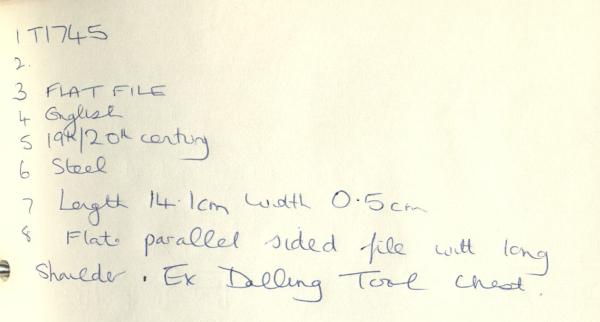 1 T1745
2.
3 FLAT FILE
4 English
5 19th/20th century
6 Steel
7 Length 14.1cm width 0.5cm
8 Flat parallel sided file with long
Shoulder. Ex Dalling Tool Chest.